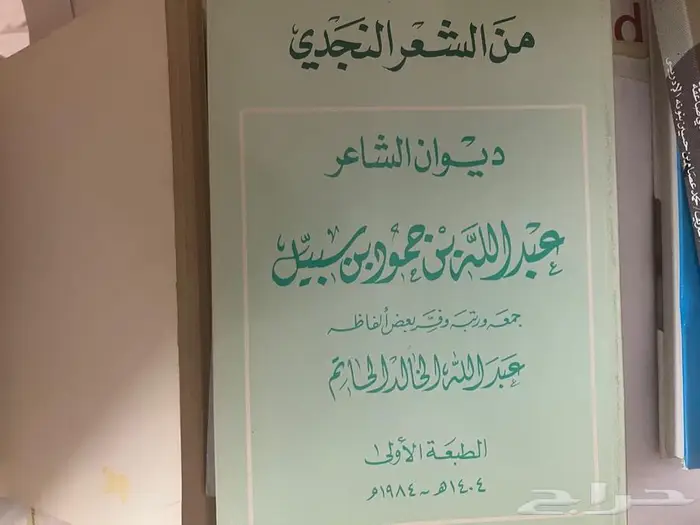 من الشعر النجدي
ديوان الشاعر
عبد الله بن حمود بن سبيل
جمعه ورتبه وفسر بعض ألفاظه
عبد الله الخالد الحاتم
الطبعة الأولى
١٤٠٤هـ - ١٩٨٤م
d
حراج